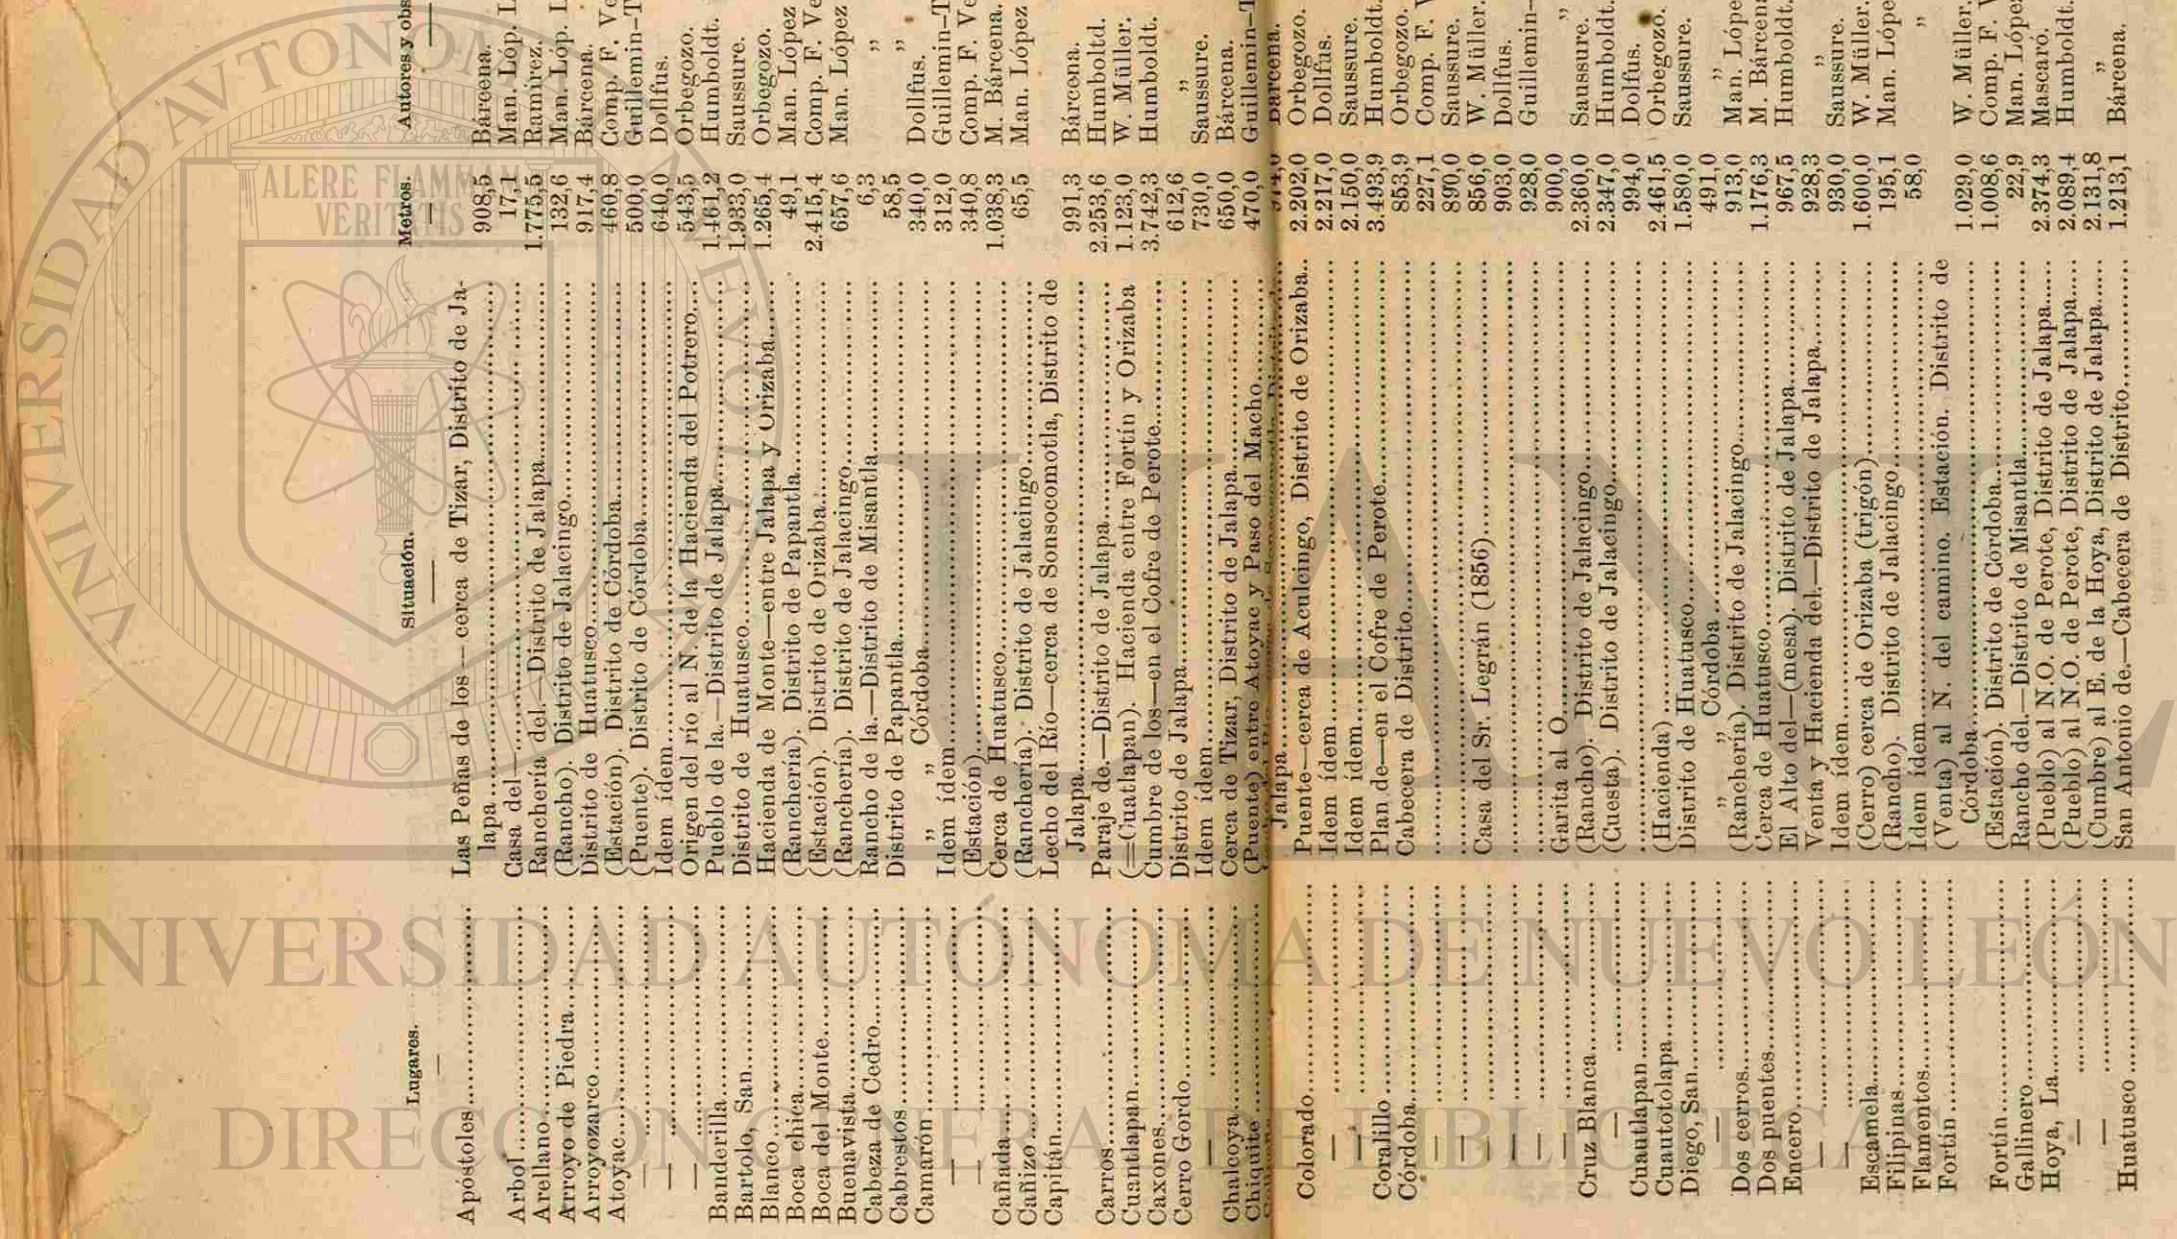 Lugares. Situación. Metros. Autores y obs
Apóstoles........ Las Peñas de los—cerca de Tizar, Distrito de Ja-
lapa........ 908,5 Bárcena.
Arbol........ Casa del—........ 17,1 Man. Lóp. L
Arellano........ Ranchería del.—Distrito de Jalapa........ 1.775,5 Ramírez.
Arroyo de Piedra........ (Rancho). Distrito de Jalacingo........ 132,6 Man. Lóp. L
Arroyozarco........ Distrito de Huatusco........ 917,4 Bárcena.
Atoyac........ (Estación). Distrito de Córdoba........ 460,8 Comp. F. Ve
—........ (Puente). Distrito de Córdoba........ 500,0 Guillemin-T
—........ Idem ídem........ 640,0 Dollfus.
—........ Origen del río al N. de la Hacienda del Potrero.... 543,5 Orbegozo.
Banderilla........ Pueblo de la.—Distrito de Jalapa........ 1.461,2 Humboldt.
Bartolo, San........ Distrito de Huatusco........ 1.933,0 Saussure.
Blanco........ Hacienda de Monte—entre Jalapa y Orizaba........ 1.265,4 Orbegozo.
Boca chica........ (Ranchería). Distrito de Papantla........ 49,1 Man. López
Boca del Monte........ (Estación). Distrito de Orizaba........ 2.415,4 Comp. F. Ve
Buenavista........ (Ranchería). Distrito de Jalacingo........ 657,6 Man. López
Cabeza de Cedro........ Rancho de la.—Distrito de Misantla........ 6,3 ,,
Cabrestos........ Distrito de Papantla........ 58,5 ,,
Camarón........ ,, ,, Córdoba........ 340,0 Dollfus.
—........ Idem ídem........ 312,0 Guillemin-T
—........ (Estación)........ 340,8 Comp. F. Ve
Cañada........ Cerca de Huatusco........ 1.038,3 M. Bárcena.
Cañizo........ (Ranchería). Distrito de Jalacingo........ 65,5 Man. López
Capitán........ Lecho del Río—cerca de Sonsocomotla, Distrito de
Jalapa........ 991,3 Bárcena.
Carros........ Paraje de.—Distrito de Jalapa........ 2.253,6 Humboltd.
Cuantlapan........ (=Guatlapan). Hacienda entre Fortín y Orizaba 1.123,0 W. Müller.
Caxones........ Cumbre de los—en el Cofre de Perote........ 3.742,3 Humboldt.
Cerro Gordo........ Distrito de Jalapa........ 612,6 ,,
—........ Idem ídem........ 730,0 Saussure.
Chalcoya........ Cerca de Tizar, Distrito de Jalapa........ 650,0 Bárcena.
Chiquite........ (Puente) entre Atoyac y Paso del Macho........ 470,0 Guillemin-T
Jalapa........ Bárcena.
Colorado........ Puente—cerca de Aculcingo, Distrito de Orizaba.. 2.202,0 Orbegozo.
—........ Idem ídem........ 2.217,0 Dollfus.
—........ Idem ídem........ 2.150,0 Saussure.
Coralillo........ Plan de—en el Cofre de Perote........ 3.493,9 Humboldt.
Córdoba........ Cabecera de Distrito........ 853,9 Orbegozo.
—........ 227,1 Comp. F. V
—........ 890,0 Saussure.
—........ Casa del Sr. Legrán (1856)........ 856,0 W. Müller.
—........ 903,0 Dollfus.
—........ 928,0 Guillemin-
—........ Garita al O........ 900,0 ,,
Cruz Blanca........ (Rancho). Distrito de Jalacingo........ 2.360,0 Saussure.
—........ (Cuesta). Distrito de Jalacingo........ 2.347,0 Humboldt.
Cuautlapan........ 994,0 Dolfus.
Cuautotolapa........ (Hacienda)........ 2.461,5 Orbegozo.
Diego, San........ Distrito de Huatusco........ 1.580,0 Saussure.
—........ ,, ,, Córdoba........ 491,0 ,,
Dos cerros........ (Ranchería). Distrito de Jalacingo........ 913,0 Man. Lópe
Dos puentes........ Cerca de Huatusco........ 1.176,3 M. Bárcena
Encero........ El Alto del—(mesa). Distrito de Jalapa........ 967,5 Humboldt.
—........ Venta y Hacienda del.—Distrito de Jalapa........ 928,3 ,,
—........ Idem ídem........ 930,0 Saussure.
Escamela........ (Cerro) cerca de Orizaba (trigón)........ 1.600,0 W. Müller.
Filipinas........ (Rancho). Distrito de Jalacingo........ 195,1 Man. Lópe
Flamentos........ Idem ídem........ 58,0 ,,
Fortín........ (Venta) al N. del camino. Estación. Distrito de
Córdoba........ 1.029,0 W. Müller.
Fortín........ (Estación). Distrito de Córdoba........ 1.008,6 Comp. F. V
Gallinero........ Rancho del.—Distrito de Misantla........ 22,9 Man. López
Hoya, La........ (Pueblo) al N.O. de Perote, Distrito de Jalapa...... 2.374,3 Mascaró.
—........ (Pueblo) al N.O. de Perote, Distrito de Jalapa.... 2.089,4 Humboldt.
—........ (Cumbre) al E. de la Hoya, Distrito de Jalapa...... 2.131,8 ,,
Huatusco........ San Antonio de.—Cabecera de Distrito........ 1.213,1 Bárcena.
UNIVERSIDAD AUTÓNOMA DE NUEVO LEÓN
DIRECCIÓN GENERAL DE BIBLIOTECAS
UANL
ALERE FLAMMAM
VERITATIS